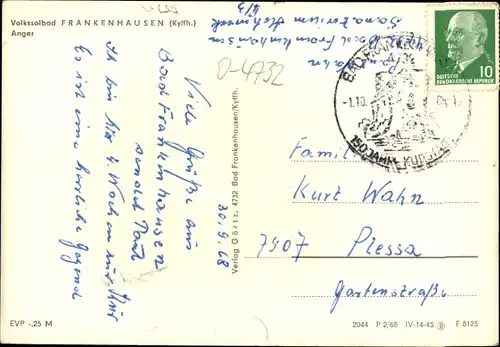 Volkssolbad FRANKENHAUSEN (Kyffh.)
Anger
Bad Frankenhausen
Sanatorium
0-4732
30.9.68
Viele Grüße aus
Bad Frankenhausen
sendet Paul
Ich bin hier 4 Wochen zur Kur
Es ist eine herrliche Gegend
Verlag Görtz, 4732 Bad Frankenhausen/Kyffh.
BAD FRANKENHAUSEN
-1.10.
150 JAHRE KURBAD
DEUTSCHE
DEMOKRATISCHE REPUBLIK
10
Familie
Kurt Wahn
7907 Plessa
Gartenstraße
EVP -,25 M
2044 P 2/68 IV-14-45 F 8125